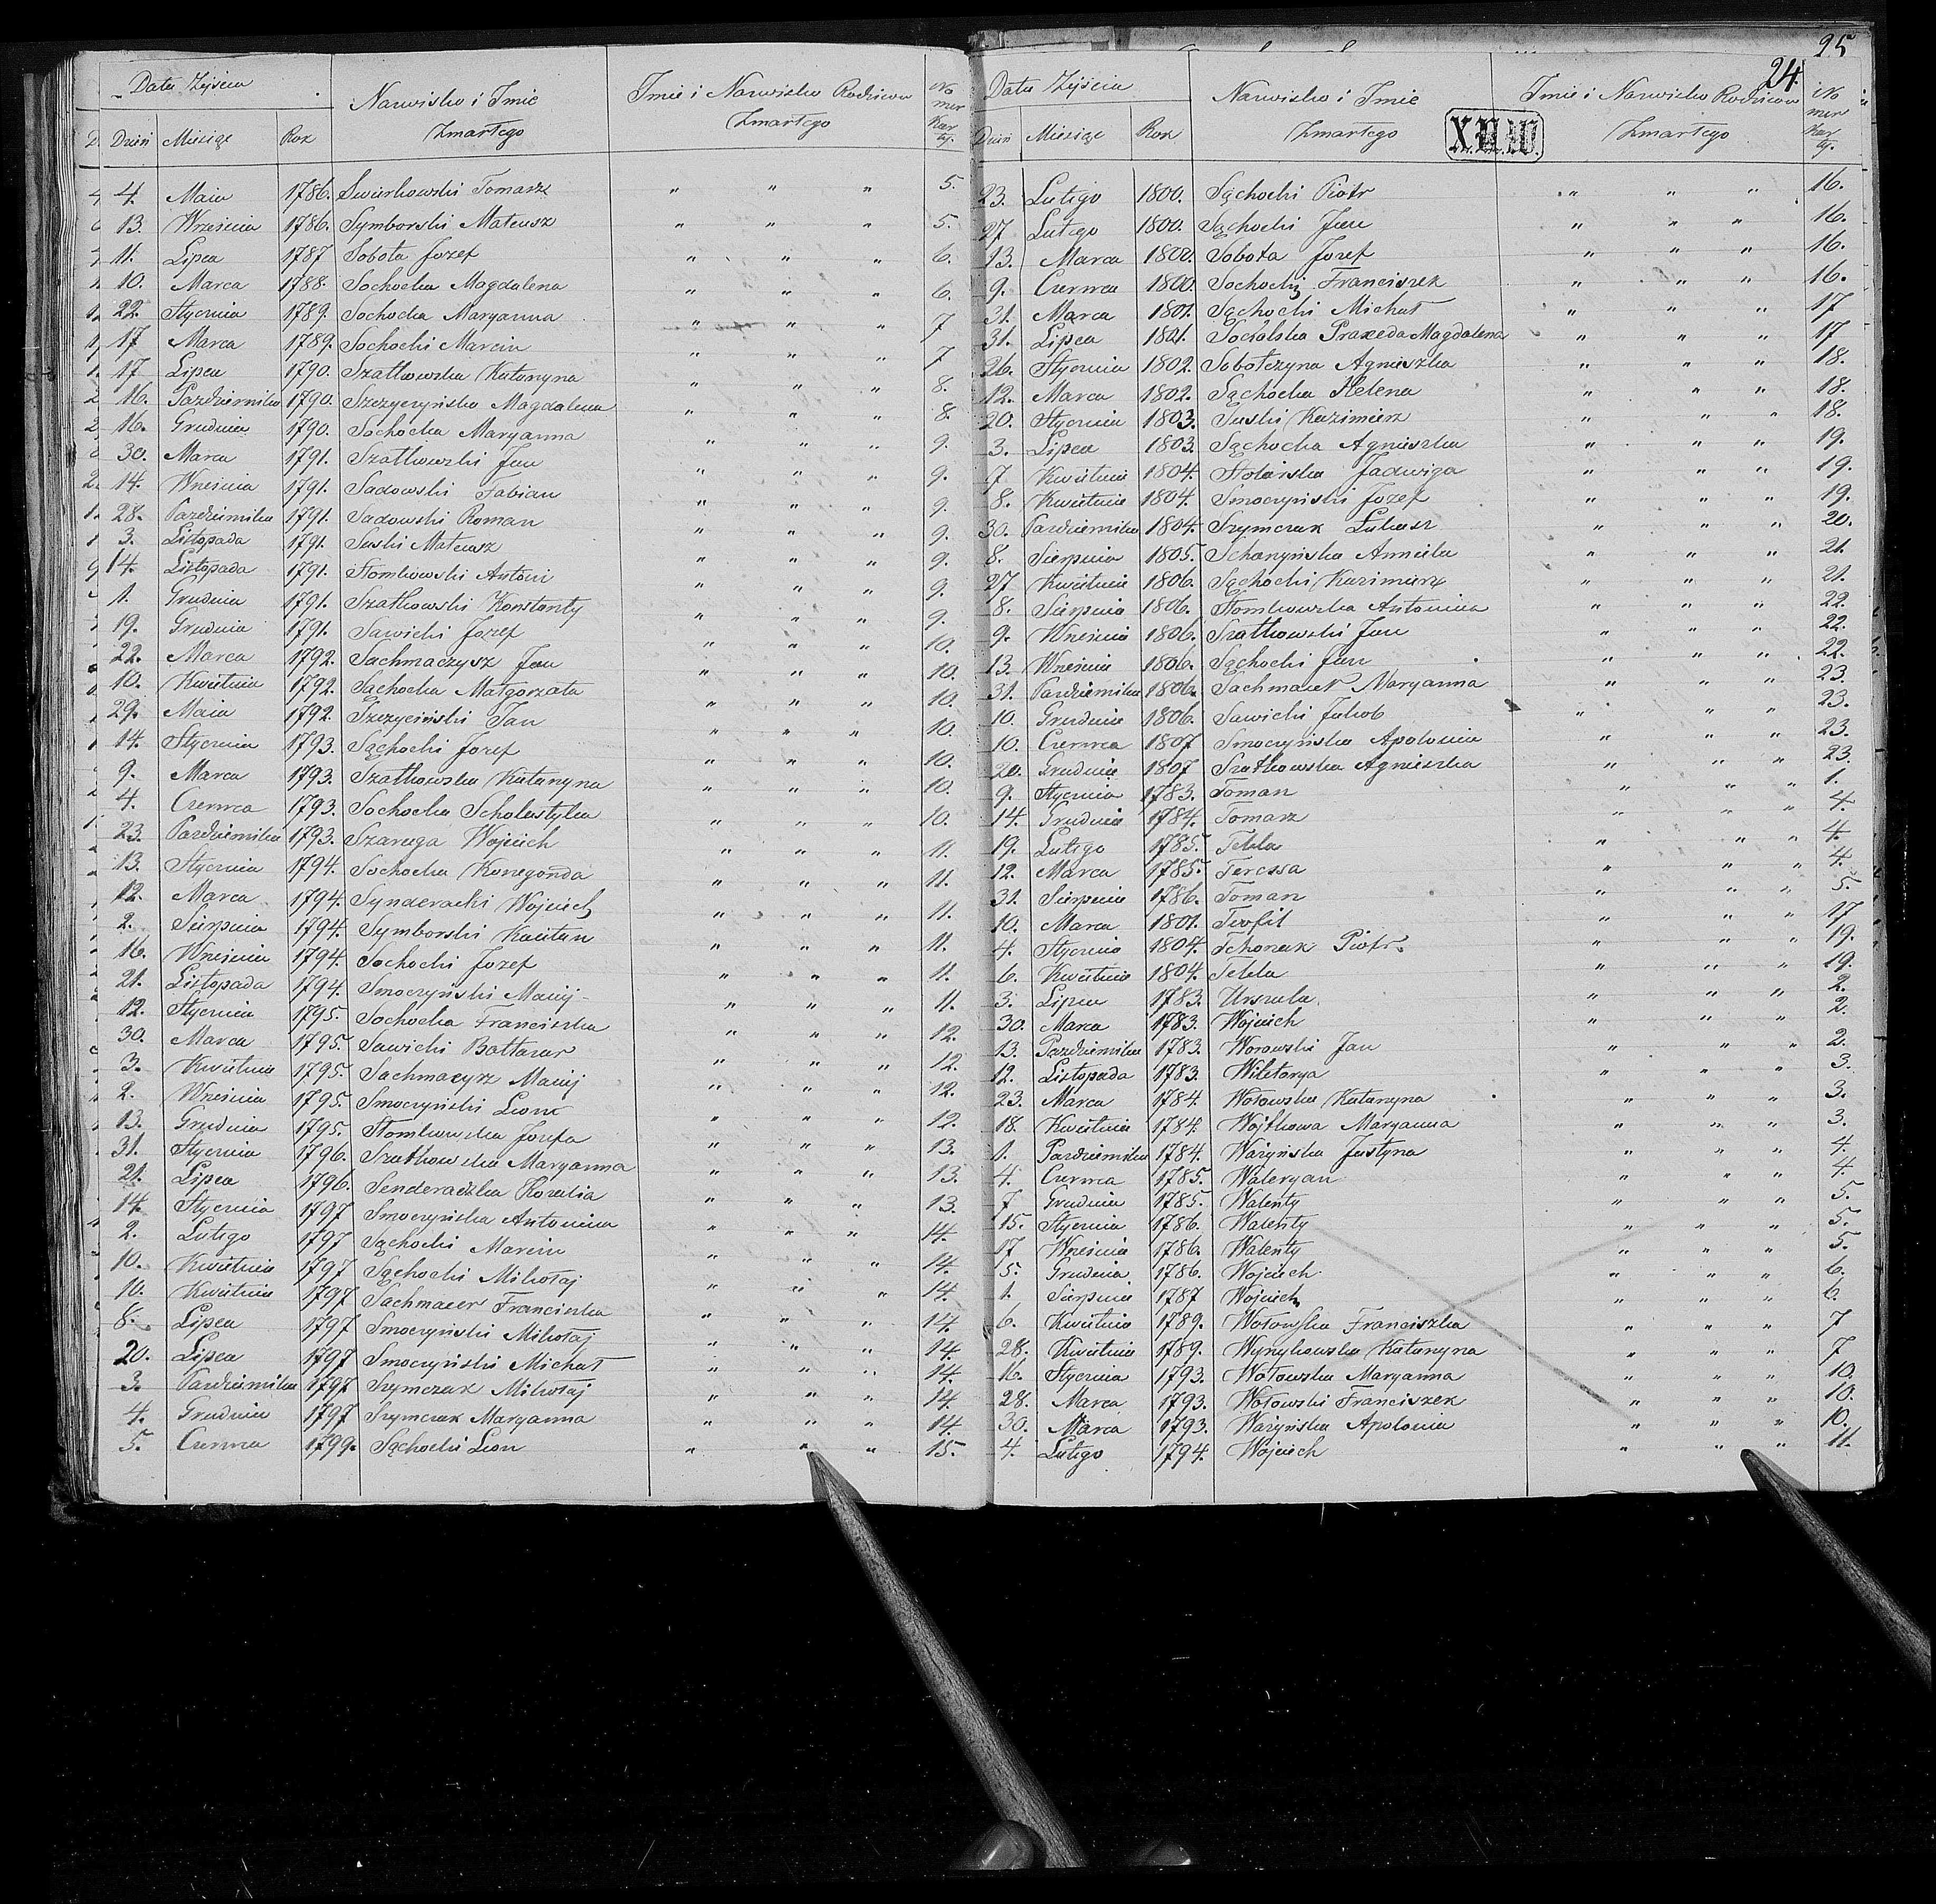 Data Zyścia Nazwisko i Imie Imie i Nazwisko Rodziców No
Dzień Miesiąc Rok Zmarłego Zmarłego mer Kar ty.
4. Maia 1786. Swierkowski Tomasz " " " 5.
13. Wrzesnia 1786. Symborski Mateusz " " " 5.
11. Lipca 1787 Sobota Jozef " " " 6.
10. Marca 1788. Sochocka Magdalena " " " 6.
22. Stycznia 1789. Sochocka Maryanna " " " 7
17 Marca 1789. Sochocki Marcin " " " 7
17 Lipca 1790. Szatkowska Katarzyna " " " 8.
16. Pazdziernika 1790. Szczyczyńska Magdalena " " " 8.
16. Grudnia 1790. Sochocka Maryanna " " " 9.
30. Marca 1791. Szatkowski Jan " " " 9.
14. Wrzesnia 1791. Sadowski Fabian " " " 9.
28. Pazdziernika 1791. Sadowski Roman " " " 9.
3. Listopada 1791. Suski Mateusz " " " 9.
14. Listopada 1791. Stomkowski Antoni " " " 9.
1. Grudnia 1791. Szatkowski Konstanty " " " 9.
19. Grudnia 1791. Sawicki Jozef " " " 10.
22. Marca 1792. Sachmaczysz Jan " " " 10.
10. Kwietnia 1792. Sąchocka Małgorzata " " " 10.
29. Maia 1792. Szczyciński Jan " " " 10.
14. Stycznia 1793. Sąchocki Jozef " " " 10.
9. Marca 1793. Szatkowska Katarzyna " " " 10.
4. Czerwca 1793. Sochocka Scholastyka " " " 10.
23. Pazdziernika 1793. Szaruga Wojciech " " " 11.
13. Stycznia 1794. Sochocka Konegonda " " " 11.
12. Marca 1794. Synderacki Wojciech " " " 11.
2. Sierpnia 1794. Symborski Kaietan " " " 11.
16. Wrzesnia 1794. Sochocki Jozef " " " 11.
21. Listopada 1794. Smoczyński Maciej " " " 11.
12. Stycznia 1795. Sochocka Franciszka " " " 12.
30. Marca 1795. Sawicki Baltazar " " " 12.
3. Kwietnia 1795. Sachmacysz Maciej " " " 12.
2. Wrzesnia 1795. Smoczyński Leon " " " 12.
13. Grudnia 1795. Stomkowska Jozefa " " " 13.
31. Stycznia 1796. Szatkowska Maryanna " " " 13.
21. Lipca 1796. Senderadzka Rozalia " " " 13
14. Stycznia 1797 Smoczyńska Antonina " " " 14.
2. Lutego 1797 Sąchocki Marcin " " " 14.
10. Kwietnia 1797 Sąchocki Mikołaj " " " 14.
10. Kwietnia 1797 Sachmacer Franciszka " " " 14.
8. Lipca 1797 Smoczyński Mikołaj " " " 14.
20. Lipca 1797 Smoczyński Michał " " " 14.
3. Pazdziernika 1797 Szymczak Mikołaj " " " 14.
4. Grudnia 1797 Szymczak Maryanna " " " 14.
5. Czerwca 1799. Sąchocki Leon " " " 15.
25
24.
Data Zyścia Nazwisko i Imie Imie i Nazwisko Rodziców No
Dzień Miesiąc Rok Zmarłego Zmarłego mer Kar ty.
23. Lutego 1800. Sąchocki Piotr " " " 16.
27 Lutego 1800. Sąchocki Jan " " " 16.
13. Marca 1800. Sobota Jozef " " " 16.
9. Czerwca 1800. Sochocki Franciszek " " " 16.
31. Marca 1801. Sąchocki Michał " " " 17
31. Lipca 1801. Sokolska Praxeda Magdalena " " " 17
26. Stycznia 1802. Sobotczyna Agnieszka " " " 18.
12. Marca 1802. Sąchocka Helena " " " 18.
20. Stycznia 1803. Suski Kazimierz " " " 18.
3. Lipca 1803. Sąchocka Agnieszka " " " 19.
7 Kwietnia 1804. Stolarska Jadwiga " " " 19.
8. Kwietnia 1804. Smoczyński Jozef " " " 19.
30. Pazdziernika 1804. Szymczak Łukasz " " " 20.
8. Sierpnia 1805. Schanyńska Anniela " " " 21.
27 Kwietnia 1806. Sąchocki Kazimierz " " " 21.
8. Sierpnia 1806. Stomkowska Antonina " " " 22.
9. Wrzesnia 1806. Szatkowski Jan " " " 22.
13. Wrzesnia 1806. Sąchocki Jan " " " 22.
31. Pazdziernika 1806. Sachmacer Maryanna " " " 23.
10. Grudnia 1806. Sawicki Jakob " " " 23.
10. Czerwca 1807 Smoczyńska Apolonia " " " 23.
20. Grudnia 1807 Szatkowska Agnieszka " " " 23.
9. Stycznia 1783. Toman " " " 1.
14. Grudnia 1784. Tomasz " " " 4.
19. Lutego 1785. Tekla " " " 4.
12. Marca 1785. Teressa " " " 4.
31. Sierpnia 1786. Toman " " " 5.
10. Marca 1801. Teofil " " " 17
4. Stycznia 1804. Tchorzak Piotr. " " " 19.
6. Kwietnia 1804. Tekla " " " 19.
3. Lipca 1783. Urszula. " " " 2.
30. Marca 1783. Wojciech " " " 2.
13. Pazdziernika 1783. Worowski Jan " " " 2.
12. Listopada 1783. Wiktorya " " " 3.
23. Marca 1784. Wołowska Katarzyna " " " 3.
18. Kwietnia 1784. Wojtkowa Maryanna " " " 3.
1. Pazdziernika 1784.Ważyńska Justyna " " " 4.
4. Czerwca 1785. Waleryan " " " 4.
7 Grudnia 1785. Walenty " " " 5.
15. Stycznia 1786. Walenty " " " 5.
17 Wrzesnia 1786. Walenty " " " 5.
5. Grudnia 1786. Wojciech " " " 6.
1. Sierpnia 1787 Wojciech " " " 6.
6. Kwietnia 1789. Wołowska Franciszka " " " 7
28. Kwietnia 1789. Wyrykowska Katarzyna " " " 7
16. Stycznia 1793. Wołowska Maryanna " " " 10.
28. Marca 1793. Wołowski Franciszek " " " 10.
30. Marca 1793.Ważyńska Apolonia " " " 10.
4. Lutego 1794. Wojciech " " " 11.